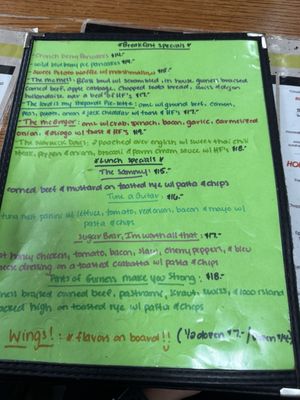 *Breakfast Specials*
Crunch Berry Pancakes $14.-
- wild blueberry pie pancakes $14.-
- Sweet Potato waffle w/ marshmallow $15.-
- The Mcmell: Bfast bowl w/ scrambled, in house Guiness braised
corned beef, apple cabbage, chopped toasted bread, swiss & dijon
hollandaise
- The Lord is my Shepards Pie-lette: oml w/ ground beef, carrot,
peas, onion & jack cheddar w/ toast & HF's $19.-
- The mcangor: oml w/ crab, spinach, bacon, garlic, carmelized
onion, & asiago w/ toast & HF's $19.-
2 poached over english w/ sweet thai chili
pepper & onion, broccoli & parm cream sauce w/ HF's $18.-
*Lunch Specials*
The Sammy! $15.-
corned beef & mustard on toasted rye w/ pasta & chips
Tune a Guitar $16.-
tuna melt panini w/ lettuce, tomato, red onion, bacon & mayo w/
pasta & chips
Sugar Bear, I'm worth all that: $17.-
hot honey chicken, tomato, bacon, slaw, cherry peppers, & bleu
cheese dressing on a toasted ciabatta w/ pasta & chips
Pints of Guiness make you Strong: $18.-
braised corned beef, pastrami, kraut, swiss, & 1000 island
stacked high on toasted rye w/ pasta & chips
Wings!: * flavors on board!! (1/2 dozen $7.-/